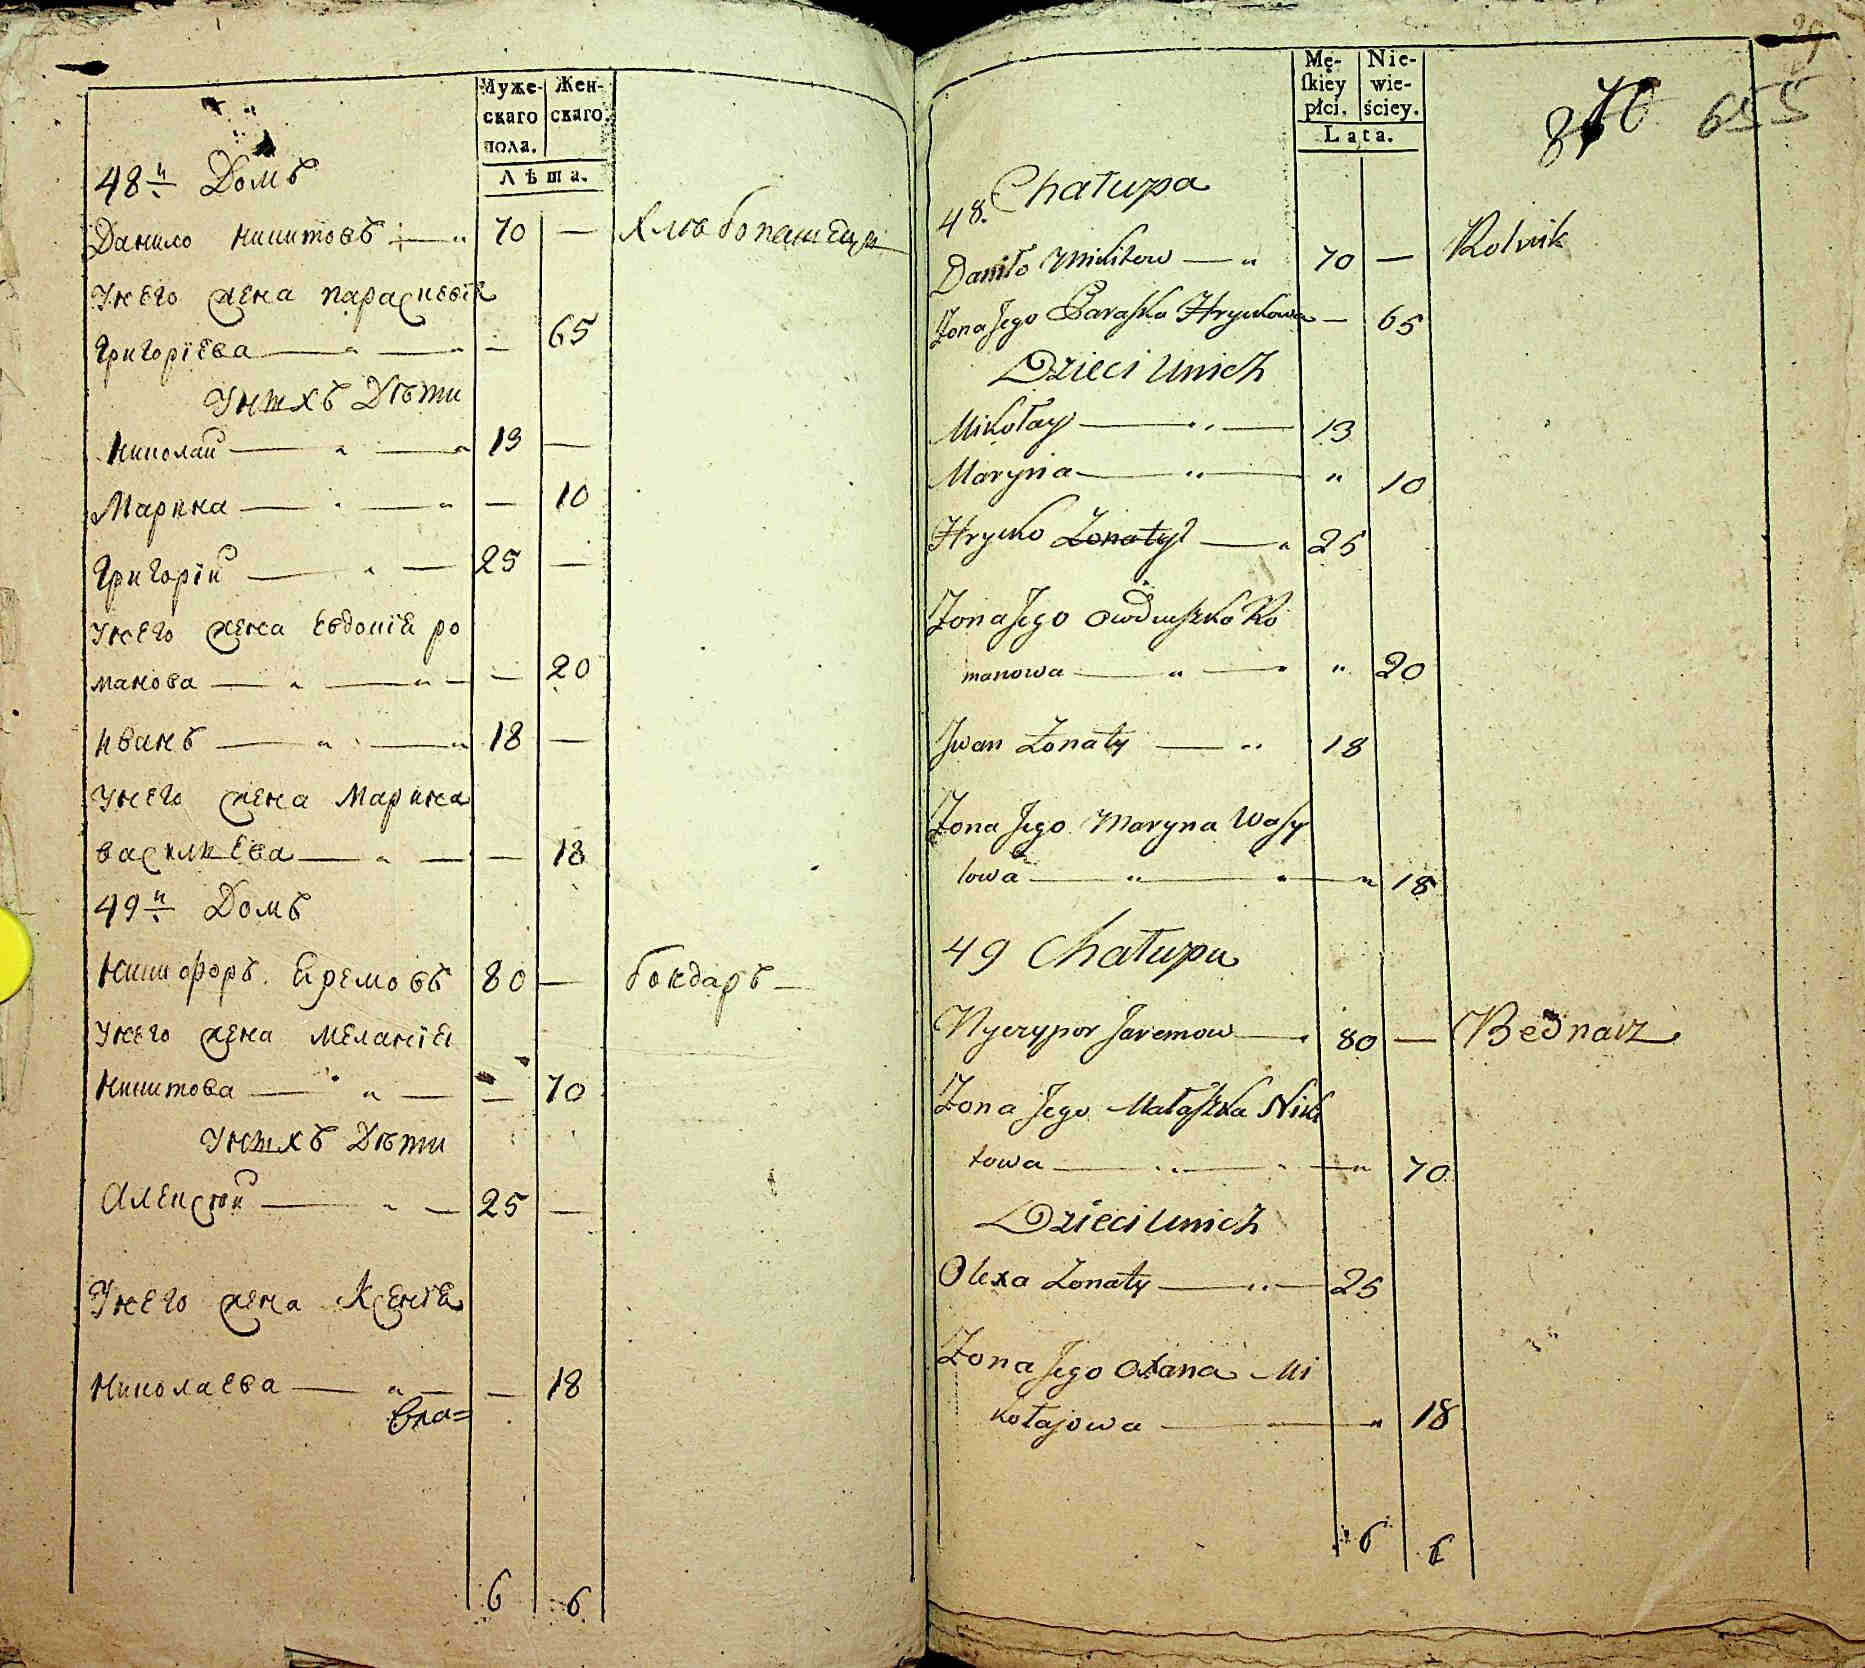 Муже-
скаго
пола.
Жен-
скаго.
Лѣта.
48й Домъ
Данило Никитовъ — " 70 — Хлебопашецъ
Унего жена Параскевiя
Григорiева — " — " — 65
Унихъ Дѣти
Николай — " — " 13 —
Марина — " — " — 10
Григорiй — " — 25 —
Унего жена Евдокiя Ро
манова — " — " — — 20
Иванъ — " — " 18 —
Унего жена Марина
Василиева — " — — 18
49й Домъ
Никифоръ Еремовъ 80 — бондаръ —
Унего жена Меланiя
Никитова — " — — 70
Унихъ Дѣти
Алексѣй — " — 25 —
Унего жена Ксенiя
Николаева — " — — 18
6 6
Mę-
skiéy
płci.
Nie-
wie-
ściey.
Lata.
29
655
48. Chałupa
Daniło Mikitow — " 70 — Rolnik
Żona Jego Paraska Hryckowa — 65
Dzieci unich
Mikołay — " — 13
Maryna — " — " 10
Hrycko Żonaty — " 25
Żona Jego Owduszka Ro
manowa — " — " " 20
Jwan Żonaty — " 18
Żona Jego Maryna Wasy
lowa — " — " — " 18
49 Chałupa
Nyczypor Jaremow — " 80 — Bednarz
Żona Jego Małaszka Niki
towa — " — " — " 70
Dzieci unich
Olexa Żonaty — " — 25
Żona Jego Oxana Mi
kołajowa — — " 18
6 6